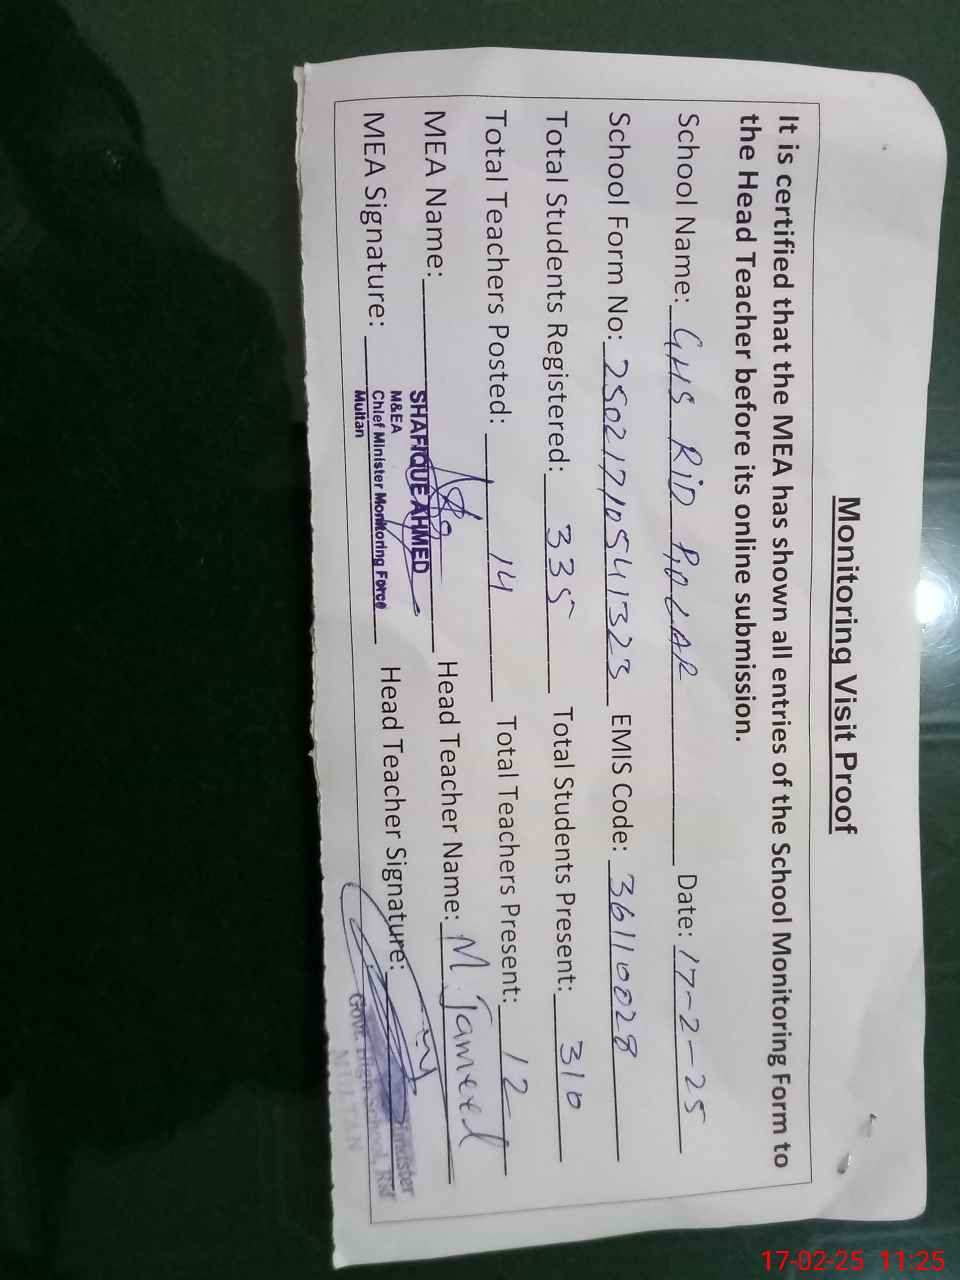 Monitoring Visit Proof
It is certified that the MEA has shown all entries of the School Monitoring Form to
the Head Teacher before its online submission.
School Name: GHS RID Date: 17-2-25
School Form No: 25021710541323 EMIS Code: 36110028
Total Students Registered: 335 Total Students Present: 310
Total Teachers Posted: 14 Total Teachers Present: 12
MEA Name: Head Teacher Name: M. Jameel
SHAFIQUE AHMED
M&EA
Chief Minister Monitoring Force
Multan
MEA Signature: Head Teacher Signature:
Govt. High School,
MULTAN
17-02-25 11:25